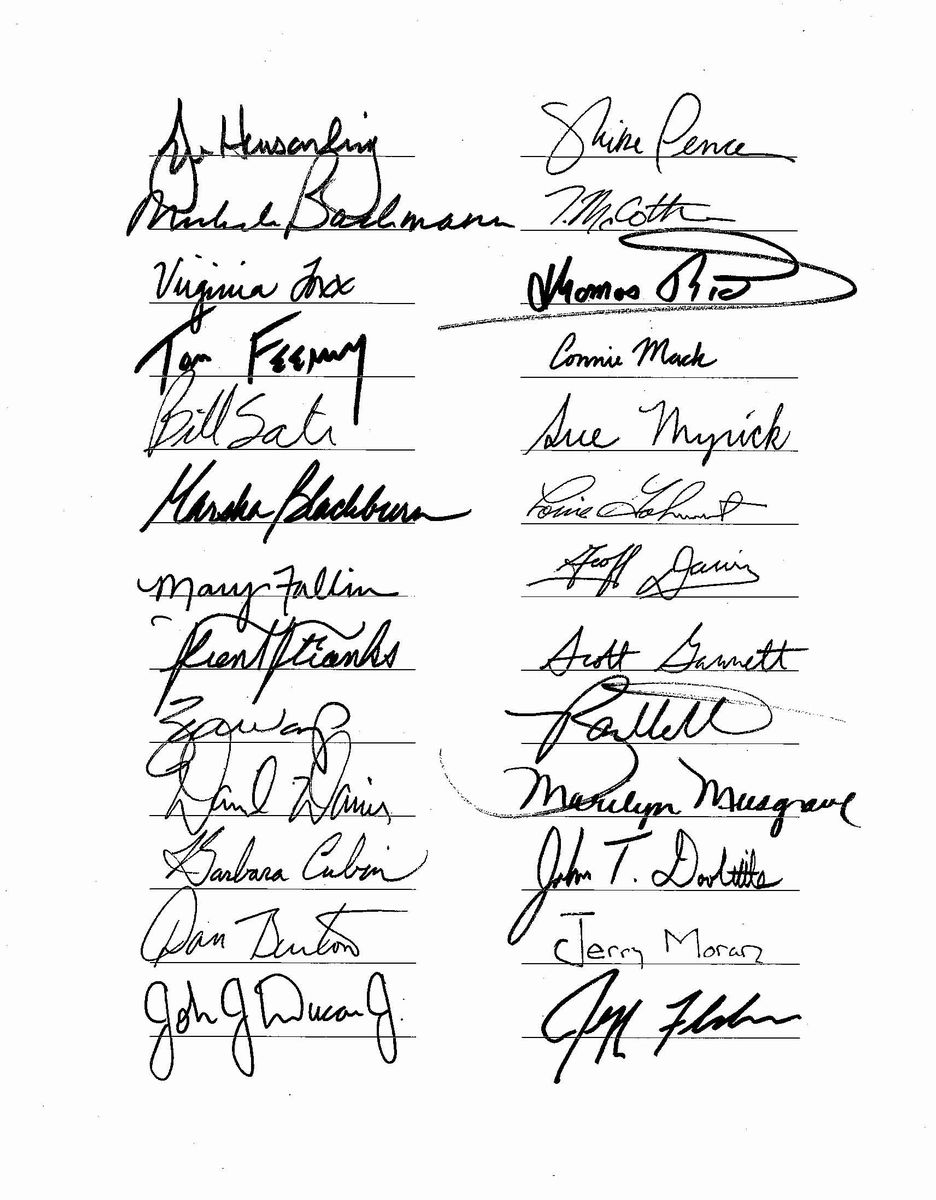 Hensarling
Mike Pence
Michele Bachmann
T. McCotter
Virginia Foxx
Thomas Price
Tom Feeney
Connie Mack
Bill Sali
Sue Myrick
Marsha Blackburn
Louie Gohmert
Mary Fallin
Geoff Davis
Trent Franks
Scott Garrett
David Davis
Marilyn Musgrave
Barbara Cubin
John T. Doolittle
Dan Burton
Jerry Moran
John J Duncan J.
Jeff